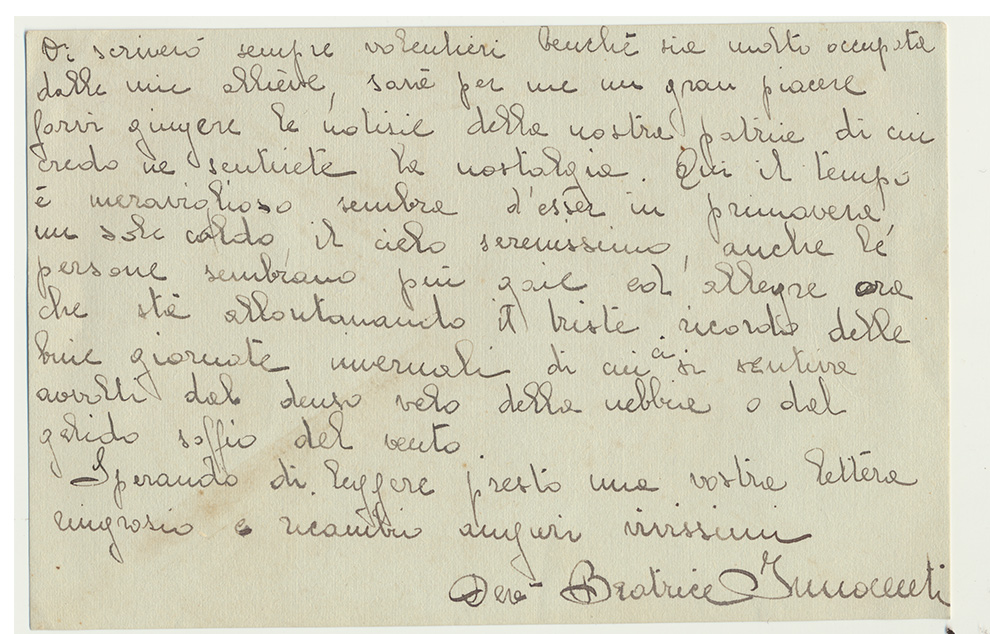 Vi scriverò sempre volentieri benchè sia molto occupata
dalle mie allieve, sarà per me un gran piacere
farvi giungere le notizie della nostra patria di cui
credo ne sentirete la nostalgia. Qui il tempo
è meraviglioso sembra d'essèr in primavera,
un sole caldo, il cielo serenissimo, anche le
persone sembrano più gaie ed allegre ora
che stà allontanando il triste ricordo delle
buie giornate invernali di cui ci si sentiva
avvolti dal denso velo della nebbia o dal
gelido soffio del vento.
Sperando di leggere presto una vostra lettera
ringrazio e ricambio auguri vivissimi
Beatrice Innocenti